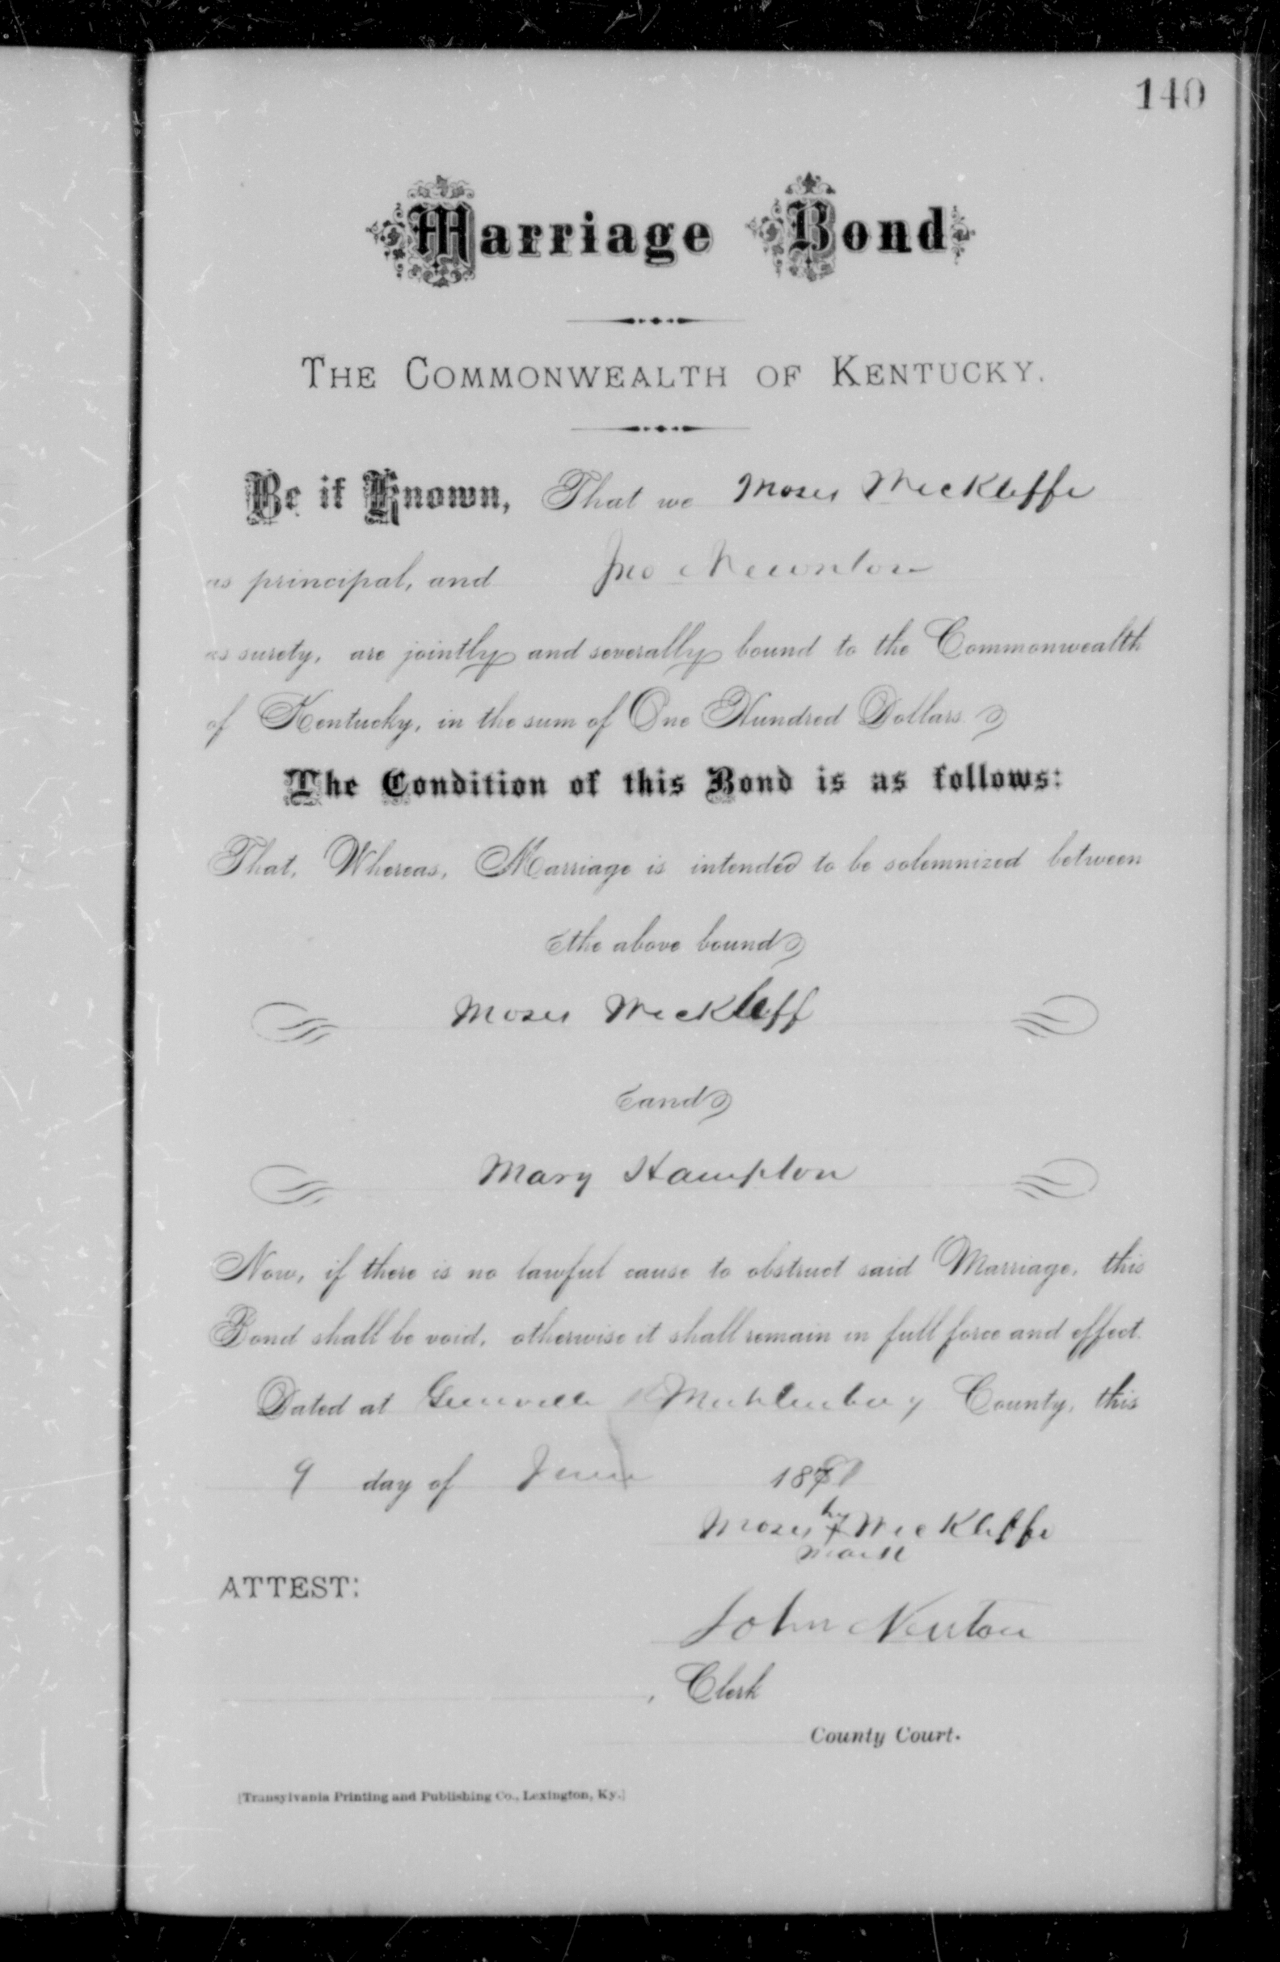 140
Marriage Bond
THE COMMONWEALTH OF KENTUCKY.
Be it Known, That we Moses Weckliffe
as principal, and Jno Newnton
as surety, are jointly and severally bound to the Commonwealth
of Kentucky, in the sum of One Hundred Dollars.
The Condition of this Bond is as follows:
That, Whereas, Marriage is intended to be solemnized between
the above bound
Moses Weckleff
and
Mary Hampton
Now, if there is no lawful cause to obstruct said Marriage, this
Bond shall be void, otherwise it shall remain in full force and effect.
Dated at Greenville Muhlenberg County, this
9 day of June 1881
Moses his x Weckliffe
mark
ATTEST:
John Newton
, Clerk
County Court.
[Transylvania Printing and Publishing Co., Lexington, Ky.]